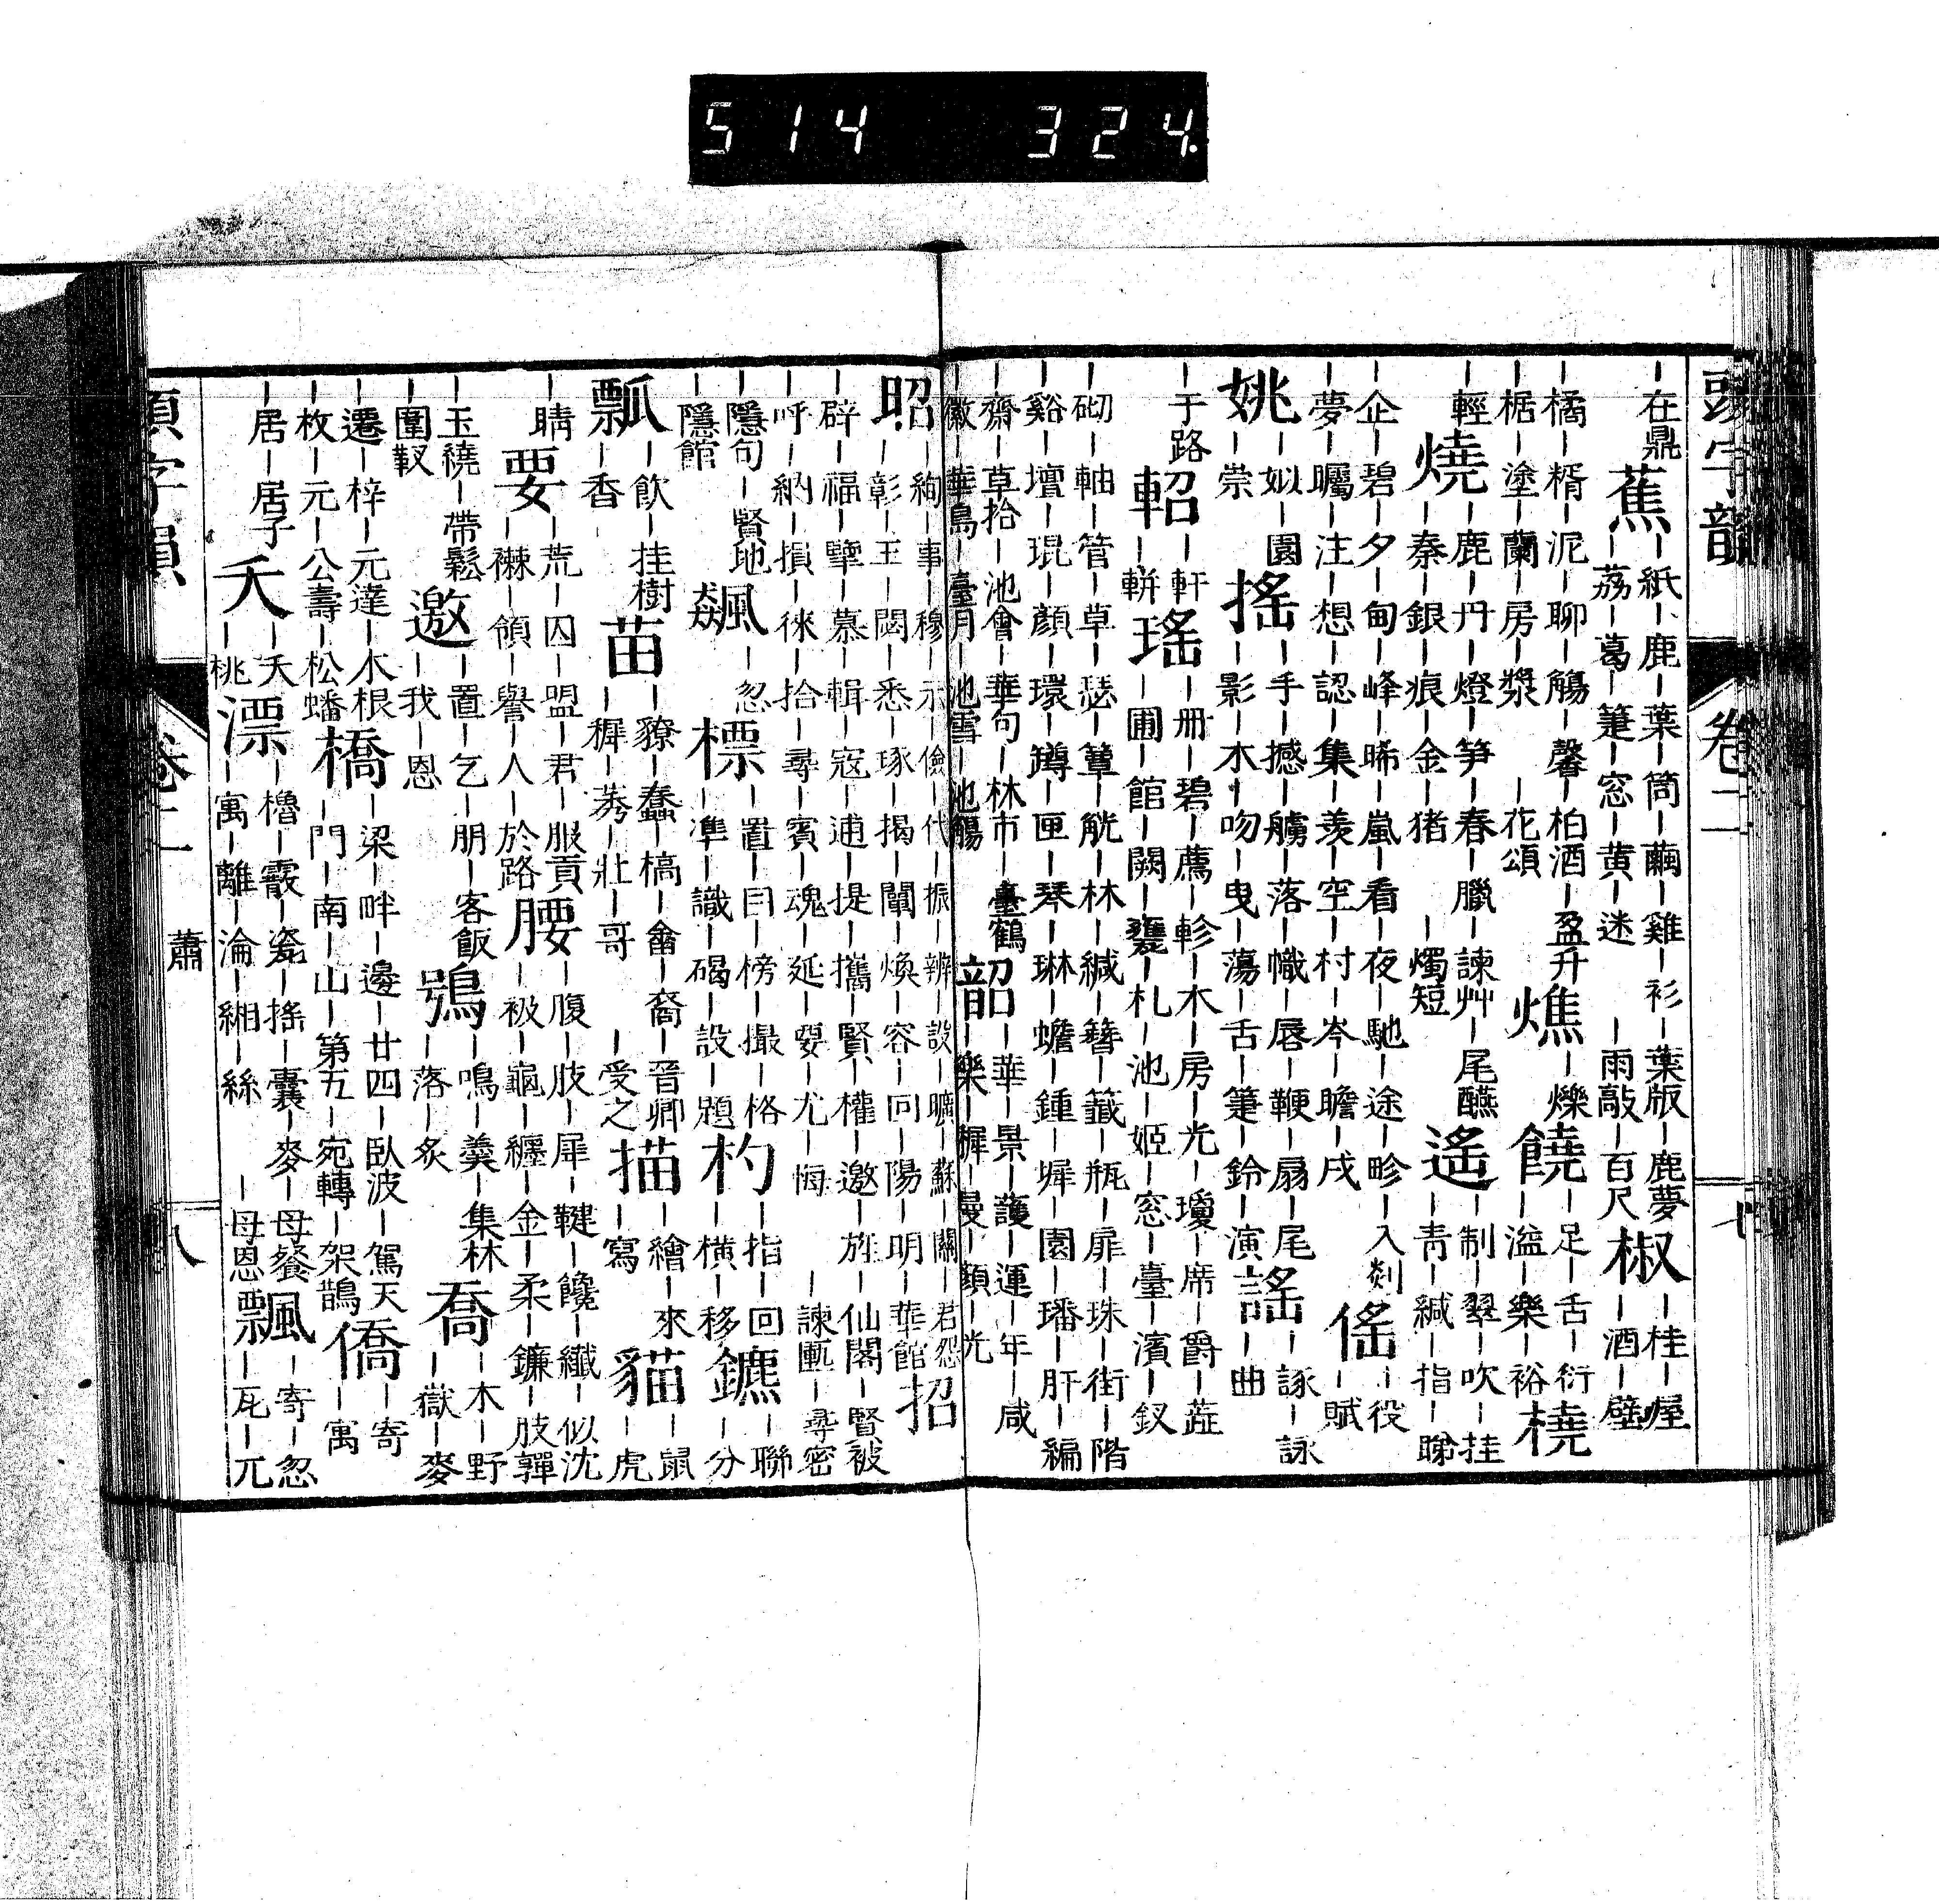 514 324.
頭字韻 卷二 七
｜在鼎 蕉｜紙｜鹿｜葉｜筒｜繭｜雞｜衫｜葉版｜鹿夢｜荔｜葛｜箑｜窓｜黄｜迷｜雨敲｜百尺 椒｜桂｜屋｜酒｜壁
｜橘｜糈｜泥｜聊｜觴｜馨｜柏酒｜盈升｜椐｜塗｜蘭｜房｜漿｜花頌 燋｜爍 饒｜足｜舌｜衍｜溢｜樂｜裕 橈
｜輕 燒｜鹿｜丹｜燈｜笋｜春｜臘｜諫艸｜尾醼｜秦｜銀｜痕｜金｜猪｜燭短 遙｜制｜翠｜吹｜挂｜青｜緘｜指｜睇
｜企｜碧｜夕｜甸｜峰｜晞｜嵐｜看｜夜｜馳｜途｜畛｜入剡｜夢｜矚｜注｜想｜認｜集｜羨｜空｜村｜岑｜瞻｜戌 徭｜役｜賦
姚｜姒｜園｜崇 搖｜手｜撼｜艣｜落｜幟｜唇｜鞭｜扇｜尾｜影｜木｜吻｜曳｜蕩｜舌｜箑｜鈴｜演 謠｜詠｜詠｜曲
｜于路 軺｜軒｜軿 瑤｜册｜碧｜薦｜軫｜木｜房｜光｜瓊｜席｜爵｜蕋｜圃｜館｜闕｜甕｜札｜池｜姬｜窓｜臺｜濱｜釵
｜砌｜軸｜管｜草｜瑟｜簟｜觥｜林｜緘｜簪｜籤｜瓶｜扉｜珠｜街｜階｜谿｜壇｜琨｜顏｜環｜蹲｜匣｜琴｜琳｜蟾｜鍾｜墀｜園｜璠｜肝｜編
｜齋｜草拾｜池會｜華句｜林市｜臺鶴｜徽｜華鳥｜臺月｜池雪｜池觴 韶｜華｜景｜護｜運｜年｜咸｜樂｜穉｜曼｜顏｜光
昭｜絢｜事｜穆｜示｜儉｜代｜振｜辨｜設｜曠｜蘇｜關｜君怨｜彰｜玉｜閟｜悉｜琢｜揭｜闡｜煥｜容｜囘｜陽｜明｜華館 招
｜辟｜福｜犖｜慕｜輯｜寇｜逋｜提｜攜｜賢｜權｜邀｜旌｜仙閣｜賢被｜呼｜納｜損｜徠｜拾｜尋｜賓｜魂｜延｜要｜尤｜悔｜諫匭｜尋密
｜隱句｜賢地｜隱館 飆｜忽 標｜置｜目｜榜｜撮｜格｜準｜識｜碣｜設｜題 杓｜指｜回｜橫｜移 鑣｜聯｜分
瓢｜飲｜挂樹｜香 苗｜獠｜蠢｜槁｜畬｜裔｜晉卿｜穉｜莠｜壯｜哥｜受之 描｜繪｜來｜寫 貓｜鼠｜虎
｜晴 要｜荒｜囚｜盟｜君｜服｜貢｜襋｜領｜譽｜人｜於路 腰｜腹｜肢｜犀｜鞬｜饞｜纖｜似沈｜袚｜龜｜纏｜金｜柔｜鐮｜肢嚲
｜玉襓｜帶鬆｜圍靫 邀｜置｜乞｜朋｜客飯｜我｜恩 鴞｜鳴｜羹｜集林｜落｜炙 喬｜木｜野｜嶽｜麥
｜遷｜梓｜元達｜木根｜枚｜元｜公壽｜松蟠 橋｜梁｜畔｜邊｜廿四｜臥波｜駕天｜門｜南｜山｜第五｜宛轉｜架鵲 僑｜寄｜寓
｜居｜居子 夭｜夭｜桃 漂｜櫓｜霰｜瓷｜搖｜囊｜麥｜母餐｜寓｜離｜淪｜緗｜絲｜母恩 飄｜寄｜忽｜瓦｜兀
頭字韻 卷二 蕭 八